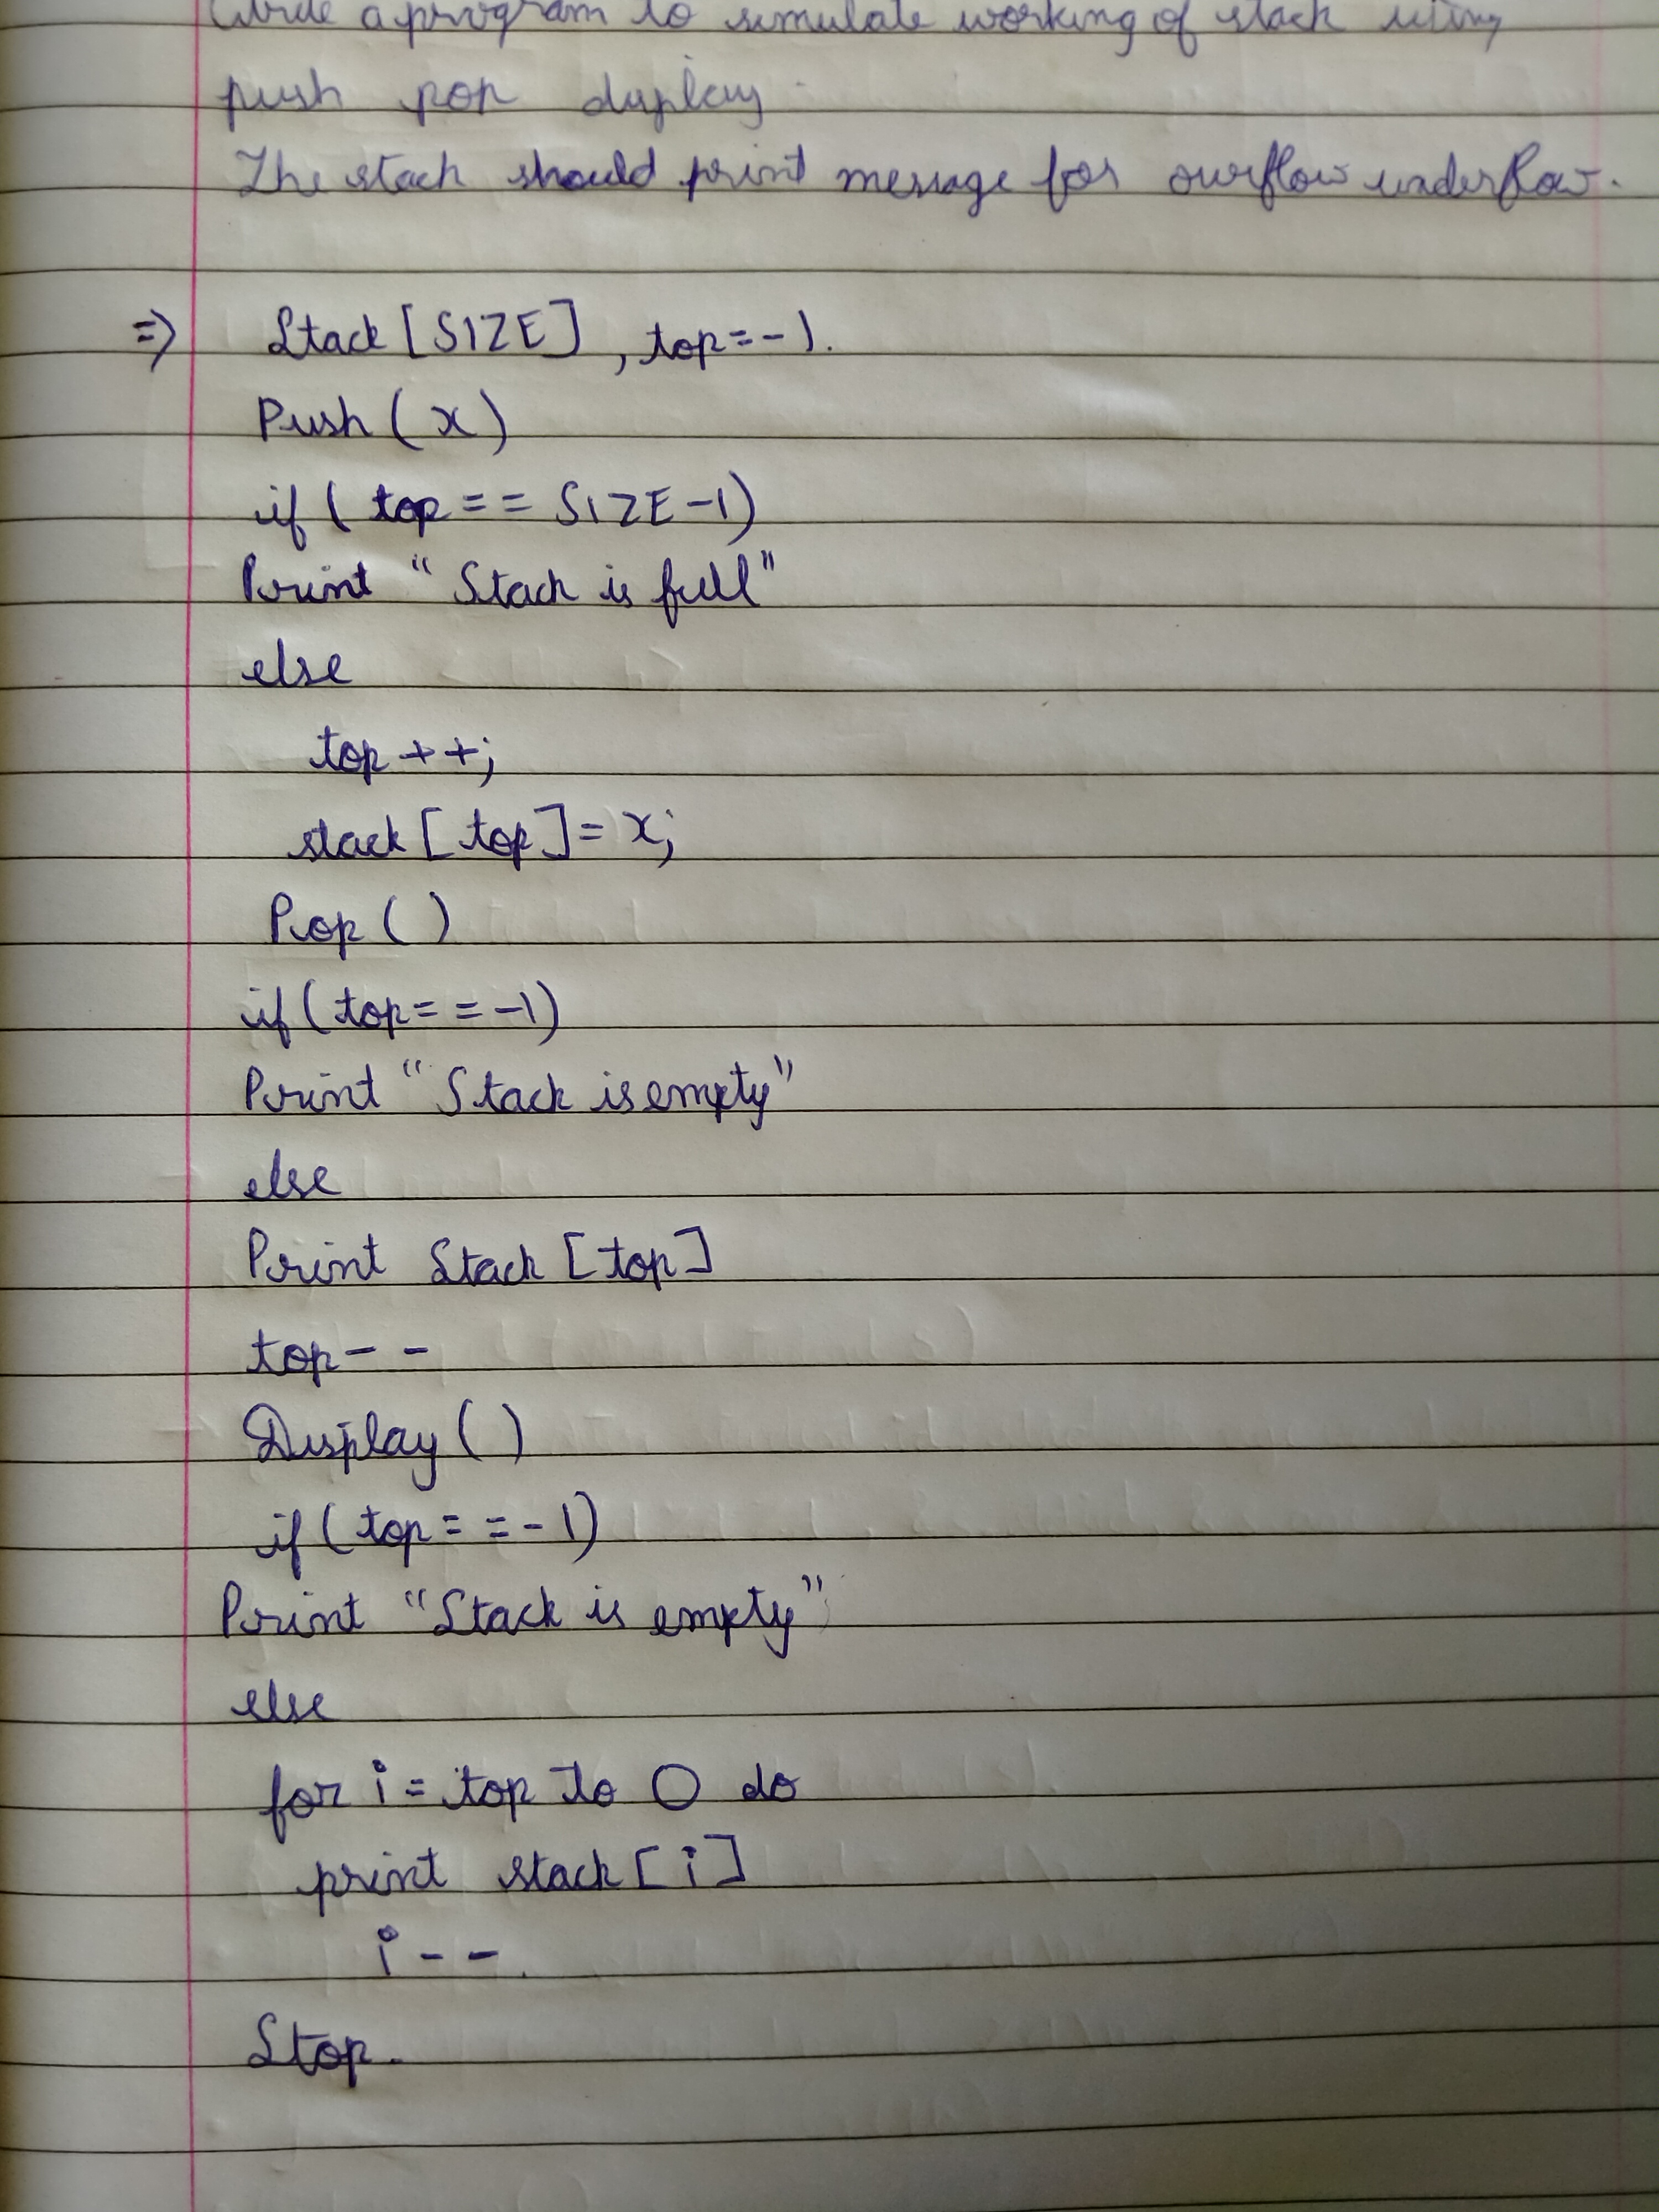 Write a program to simulate working of stack using
push pop display.
The stack should print message for overflow underflow.
=> Stack [SIZE] , top=-1.
Push (x)
if ( top == SIZE-1)
Print "Stack is full"
else
top ++;
stack [top] = x;
Pop ( )
if (top == -1)
Print "Stack is empty"
else
Print Stack [top]
top--
Display ( )
if (top == -1)
Print "Stack is empty"
else
for i = top to 0 do
print stack [i]
i--.
Stop.